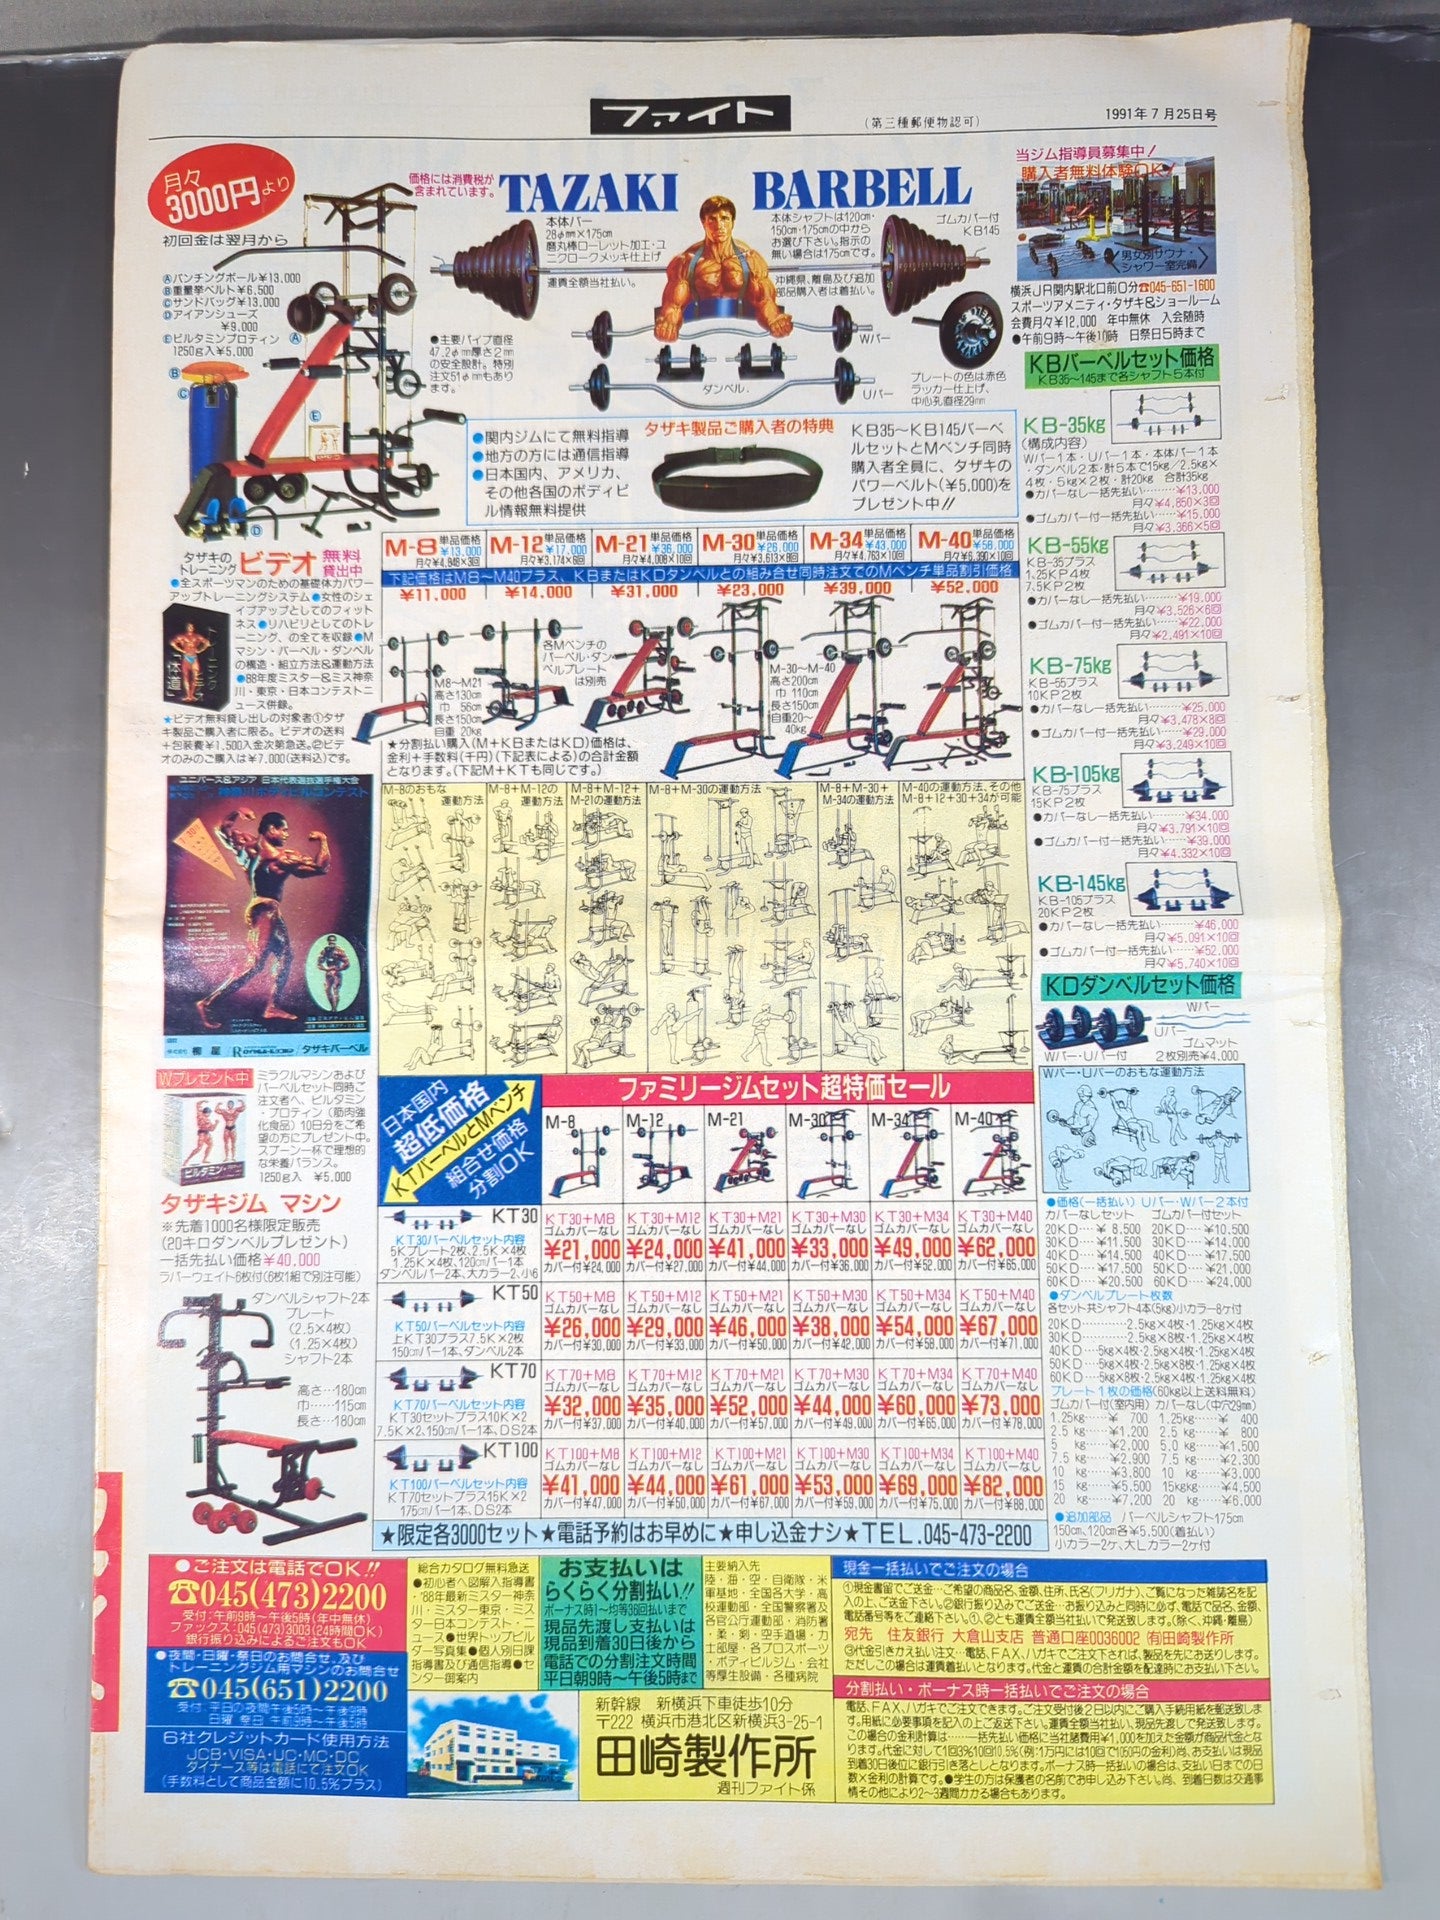 ファイト
(第三種郵便物認可)
1991年7月25日号
月々
3000円より
初回金は翌月から
価格には消費税が
含まれています。
TAZAKI BARBELL
本体バー
28φmm×175cm
磨丸棒ローレット加工・ユ
ニクロークメッキ仕上げ
運賃全額当社払い。
本体シャフトは120cm・
150cm・175cmの中から
お選び下さい。指示の
無い場合は175cmです。
沖縄県、離島及び追加
部品購入者は着払い。
ゴムカバー付
KB145
当ジム指導員募集中!
購入者無料体験OK!
男女別サウナ・
シャワー室完備
横浜JR関内駅北口前0分☎045-651-1600
スポーツアメニティ・タザキ&ショールーム
会費月々¥12,000 年中無休 入会随時
●午前9時〜午後10時 日祭日5時まで
Ⓐパンチングボール¥13,000
Ⓑ重量挙ベルト¥6,500
Ⓒサンドバッグ¥13,000
Ⓓアイアンシューズ
¥9,000
Ⓔビルタミンプロティン
1250g入¥5,000
●主要パイプ直径
47.2φmm厚さ2mm
の安全設計。特別
注文51φmmもあり
ます。
Wバー
ダンベル
Uバー
プレートの色は赤色
ラッカー仕上げ、
中心孔直径29mm
●関内ジムにて無料指導
●地方の方には通信指導
●日本国内、アメリカ、
その他各国のボディビ
ル情報無料提供
タザキ製品ご購入者の特典
KB35〜KB145バーベ
ルセットとMベンチ同時
購入者全員に、タザキの
パワーベルト(¥5,000)を
プレゼント中!!
KBバーベルセット価格
KB35〜145まで各シャフト5本付
KB-35kg
(構成内容)
Wバー1本・Uバー1本・本体バー1本
・ダンベル2本・計5本で15kg/2.5kg×
4枚・5kg×2枚・計20kg 合計35kg
●カバーなし一括先払い………¥13,000
月々¥4,850×3回
●ゴムカバー付一括先払い……¥15,000
月々¥3,366×5回
KB-55kg
KB-35プラス
1.25KP4枚
7.5KP2枚
●カバーなし一括先払い………¥19,000
月々¥3,526×6回
●ゴムカバー付一括先払い……¥22,000
月々¥2,491×10回
KB-75kg
KB-55プラス
10KP2枚
●カバーなし一括先払い………¥25,000
月々¥3,478×8回
●ゴムカバー付一括先払い……¥29,000
月々¥3,249×10回
KB-105kg
KB-75プラス
15KP2枚
●カバーなし一括先払い………¥34,000
月々¥3,791×10回
●ゴムカバー付一括先払い……¥39,000
月々¥4,332×10回
KB-145kg
KB-105プラス
20KP2枚
●カバーなし一括先払い………¥46,000
月々¥5,091×10回
●ゴムカバー付一括先払い……¥52,000
月々¥5,740×10回
タザキの
トレーニング ビデオ 無料
貸出中
●全スポーツマンのための基礎体力パワー
アップトレーニングシステム●女性のシェ
イプアップとしてのフィット
ネス●リハビリとしてのトレ
ーニング、の全てを収録●M
マシン・バーベル・ダンベル
の構造・組立方法&運動方法
●88年度ミスター&ミス神奈
川・東京・日本コンテストニ
ュース併録。
★ビデオ無料貸し出しの対象者①タザ
キ製品ご購入者に限る。ビデオの送料
+包装費¥1,500入金次第急送。②ビデ
オのみのご購入は¥7,000(送料込)です。
M-8 単品価格 ¥13,000
月々¥4,848×3回
M-12 単品価格 ¥17,000
月々¥3,174×6回
M-21 単品価格 ¥36,000
月々¥4,008×10回
M-30 単品価格 ¥26,000
月々¥3,613×8回
M-34 単品価格 ¥43,000
月々¥4,763×10回
M-40 単品価格 ¥58,000
月々¥6,390×10回
下記価格はM8〜M40プラス、KBまたはKDダンベルとの組み合せ同時注文でのMベンチ単品割引価格
¥11,000 ¥14,000 ¥31,000 ¥23,000 ¥39,000 ¥52,000
各Mベンチの
バーベル・ダン
ベルプレート
は別売
M8〜M21
高さ130cm
巾 56cm
長さ150cm
自重 20kg
M-30〜M-40
高さ200cm
巾 110cm
長さ150cm
自重20〜
40kg
★分割払い購入(M+KBまたはKD)価格は、
金利+手数料(千円)(下記表による)の合計金額
となります。(下記M+KTも同じです。)
M-8のおもな
運動方法
M-8+M-12の
運動方法
M-8+M-12+
M-21の運動方法
M-8+M-30の運動方法
M-8+M-30+
M-34の運動方法
M-40の運動方法、その他
M-8+12+30+34が可能
ユニバース&アジア 日本代表選抜選手権大会
神奈川ボディビルコンテスト
タザキバーベル
KDダンベルセット価格
Wバー
Uバー
ゴムマット
Wバー・Uバー付 2枚別売¥4,000
Wバー・Uバーのおもな運動方法
Wプレゼント中
ミラクルマシンおよび
バーベルセット同時ご
注文者へ、ビルタミン
・プロティン(筋肉強
化食品)10日分をご希
望の方にプレゼント中。
スプーン一杯で理想的
な栄養バランス。
1250g入 ¥5,000
タザキジム マシン
※先着1000名様限定販売
(20キロダンベルプレゼント)
一括先払い価格¥40,000
ラバーウェイト6枚付(6枚1組で別注可能)
ダンベルシャフト2本
プレート
(2.5×4枚)
(1.25×4枚)
シャフト2本
高さ…180cm
巾……115cm
長さ…180cm
日本国内
超低価格
KTバーベルとMベンチ
組合せ価格
分割OK
ファミリージムセット超特価セール
M-8 M-12 M-21 M-30 M-34 M-40
KT30
KT30バーベルセット内容
5Kプレート2枚、2.5K×4枚
1.25K×4枚、120cmバー1本
ダンベルバー2本、大カラー2、小6
KT30+M8 KT30+M12 KT30+M21 KT30+M30 KT30+M34 KT30+M40
ゴムカバーなし ゴムカバーなし ゴムカバーなし ゴムカバーなし ゴムカバーなし ゴムカバーなし
¥21,000 ¥24,000 ¥41,000 ¥33,000 ¥49,000 ¥62,000
カバー付¥24,000 カバー付¥27,000 カバー付¥44,000 カバー付¥36,000 カバー付¥52,000 カバー付¥65,000
KT50
KT50バーベルセット内容
上KT30プラス7.5K×2枚
150cmバー1本、ダンベル2本
KT50+M8 KT50+M12 KT50+M21 KT50+M30 KT50+M34 KT50+M40
ゴムカバーなし ゴムカバーなし ゴムカバーなし ゴムカバーなし ゴムカバーなし ゴムカバーなし
¥26,000 ¥29,000 ¥46,000 ¥38,000 ¥54,000 ¥67,000
カバー付¥30,000 カバー付¥33,000 カバー付¥50,000 カバー付¥42,000 カバー付¥58,000 カバー付¥71,000
KT70
KT70バーベルセット内容
KT30セットプラス10K×2
7.5K×2、150cmバー1本、DS2本
KT70+M8 KT70+M12 KT70+M21 KT70+M30 KT70+M34 KT70+M40
ゴムカバーなし ゴムカバーなし ゴムカバーなし ゴムカバーなし ゴムカバーなし ゴムカバーなし
¥32,000 ¥35,000 ¥52,000 ¥44,000 ¥60,000 ¥73,000
カバー付¥37,000 カバー付¥40,000 カバー付¥57,000 カバー付¥49,000 カバー付¥65,000 カバー付¥78,000
KT100
KT100バーベルセット内容
KT70セットプラス15K×2
175cmバー1本、DS2本
KT100+M8 KT100+M12 KT100+M21 KT100+M30 KT100+M34 KT100+M40
ゴムカバーなし ゴムカバーなし ゴムカバーなし ゴムカバーなし ゴムカバーなし ゴムカバーなし
¥41,000 ¥44,000 ¥61,000 ¥53,000 ¥69,000 ¥82,000
カバー付¥47,000 カバー付¥50,000 カバー付¥67,000 カバー付¥59,000 カバー付¥75,000 カバー付¥88,000
★限定各3000セット★電話予約はお早めに★申し込金ナシ★TEL.045-473-2200
●価格(一括払い) Uバー・Wバー2本付
カバーなしセット ゴムカバー付セット
20KD……¥ 8,500 20KD……¥10,500
30KD……¥11,500 30KD……¥14,000
40KD……¥14,500 40KD……¥17,500
50KD……¥17,500 50KD……¥21,000
60KD……¥20,500 60KD……¥24,000
●ダンベルプレート枚数
各セット共シャフト4本(5kg)小カラー8ヶ付
20KD…………2.5kg×4枚・1.25kg×4枚
30KD…………2.5kg×8枚・1.25kg×4枚
40KD…5kg×4枚・2.5kg×4枚・1.25kg×4枚
50KD…5kg×4枚・2.5kg×8枚・1.25kg×4枚
60KD…5kg×8枚・2.5kg×4枚・1.25kg×4枚
プレート1枚の価格(60kg以上送料無料)
ゴムカバー付(室内用) カバーなし(中穴29mm)
1.25kg……¥ 700 1.25kg……¥ 400
2.5 kg……¥1,200 2.5 kg……¥ 800
5 kg……¥2,000 5.0 kg……¥1,500
7.5 kg……¥2,900 7.5 kg……¥2,300
10 kg……¥3,800 10 kg……¥3,000
15 kg……¥5,500 15kgkg……¥4,500
20 kg……¥7,200 20 kg……¥6,000
●追加部品 バーベルシャフト175cm
150cm、120cm各¥5,500(着払い)
小カラー2ケ、大Lカラー2ケ付
●ご注文は電話でOK!!
☎045(473)2200
受付:午前9時〜午後5時(年中無休)
ファックス:045(473)3003(24時間OK)
銀行振り込みによるご注文もOK
●夜間・日曜・祭日のお問合せ、及び
トレーニングジム用マシンのお問合せ
☎045(651)2200
受付、平日の夜間午後5時〜午後9時
日曜、祭日、午前9時〜午後5時
6社クレジットカード使用方法
JCB・VISA・UC・MC・DC
ダイナース等は電話にて注文OK
(手数料として商品金額に10.5%プラス)
総合カタログ無料急送
●初心者へ図解入指導書
・'88年最新ミスター神奈
川・ミスター東京・ミス
ター日本コンテスト・ニ
ュース●世界トップビル
ダー写真集●個人別日課
指導書及び通信指導●セ
ンター御案内
お支払いは
らくらく分割払い!!
ボーナス時1〜均等36回払いまで
現品先渡し支払いは
現品到着30日後から
電話での分割注文時間
平日朝9時〜午後5時まで
主要納入先
陸・海・空・自衛隊・米
軍基地・全国各大学・高
校運動部・全国警察署及
各官公庁運動部・消防署
・柔・剣・空手道場・力
士部屋・各プロスポーツ
・ボディビルジム・会社
等厚生設備・各種病院
新幹線 新横浜下車徒歩10分
〒222 横浜市港北区新横浜3-25-1
田崎製作所
週刊ファイト係
現金一括払いでご注文の場合
①現金書留でご送金…ご希望の商品名、金額、住所、氏名(フリガナ)、ご覧になった雑誌名を記
入の上、ご送金下さい。②銀行振り込みでご送金…お振込みと同時に必ず、電話で品名、金額、
電話番号等をご連絡下さい。①、②とも運賃全額当社払いで発送致します。(除く、沖縄・離島)
宛先 住友銀行 大倉山支店 普通口座0036002 ㈲田崎製作所
③代金引きかえ払い注文…電話、FAX、ハガキでご注文下されば、製品を先にお送りします。
ただしこの場合は運賃着払いとなります。代金と運賃の合計金額を配達時にお支払い下さい。
分割払い・ボーナス時一括払いでご注文の場合
電話、FAX、ハガキでご注文できます。ご注文受付後2日以内にご購入手続用紙を郵送致しま
す。用紙に必要事項を記入の上ご返送下さい。運賃全額当社払、現品先渡しで発送致します。
この場合の金利計算は……一括先払い価格に当社諸費用¥1,000を加えた金額が商品代金とな
ります。代金に対して1回3%10回10.5%(例:1万円には10回で1050円の金利)尚、お支払いは現品
到着30日後位に銀行引き落としとなります。ボーナス時一括払いの場合は、支払い日までの日
数×金利の計算です。●学生の方は保護者の名前でお申し込み下さい。尚、到着日数は交通事
情その他により2〜3週間かかる場合もあります。